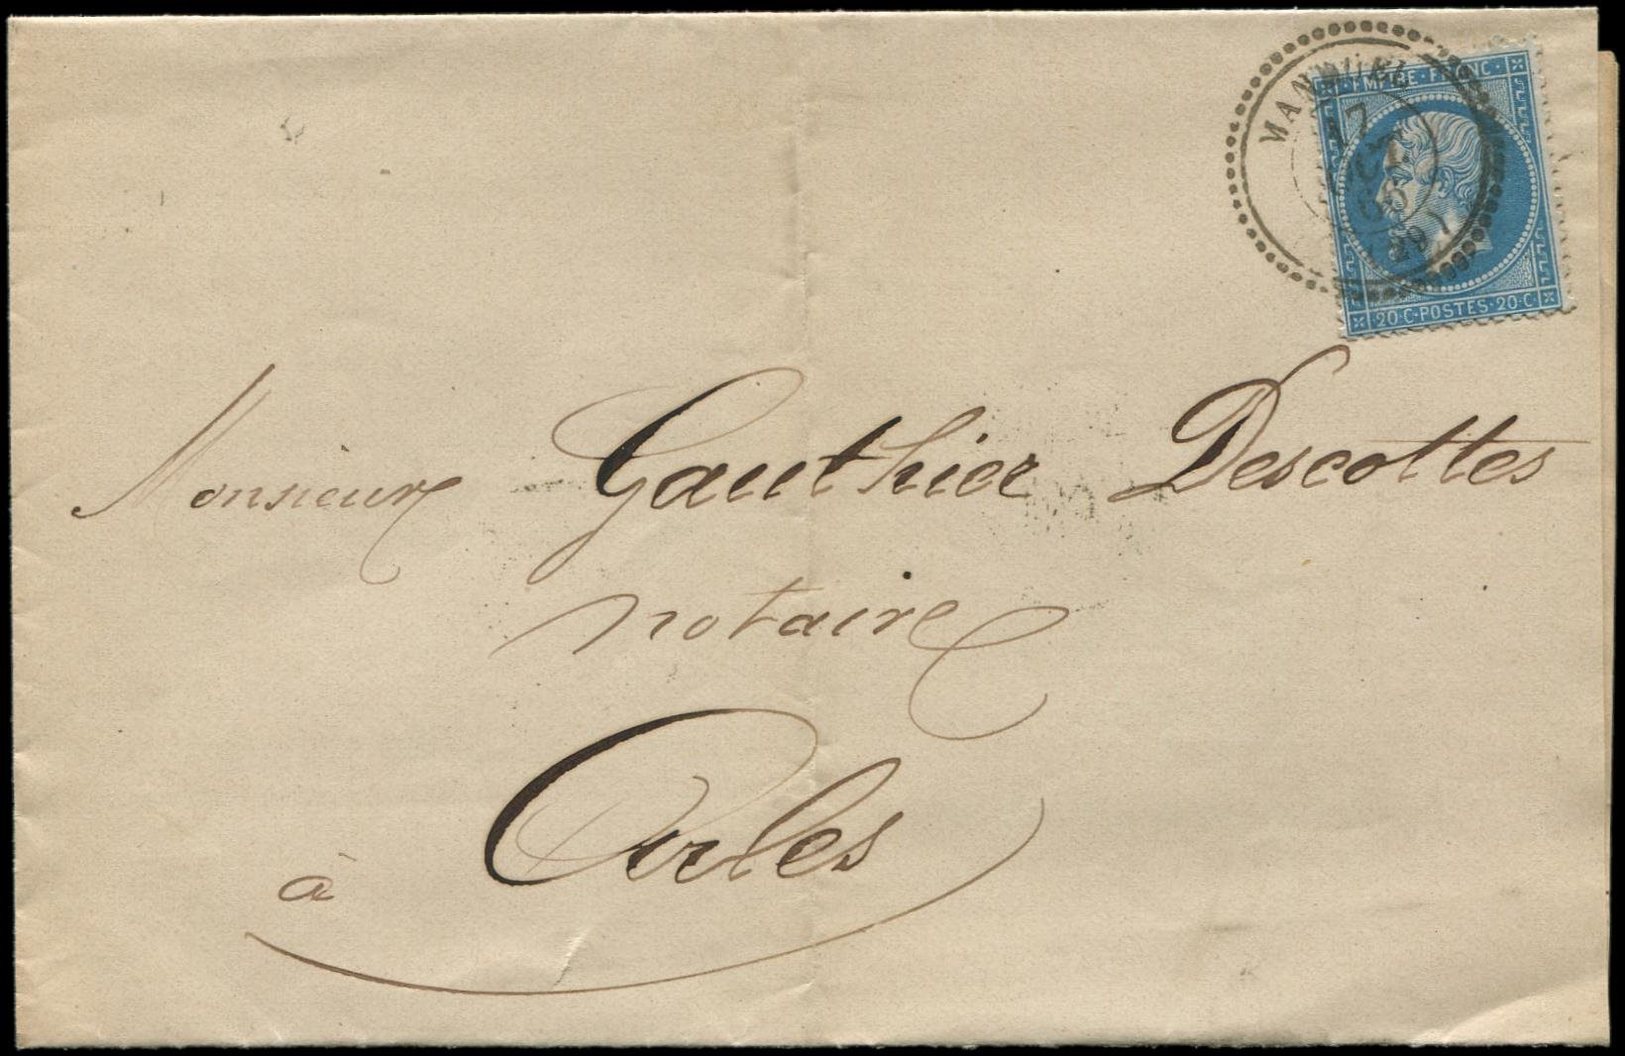 MANDUEL
17
68
(28)
EMPIRE · FRANC ·
20 · C · POSTES · 20 · C
Monsieur Gauthier Descottes
notaire
à Arles